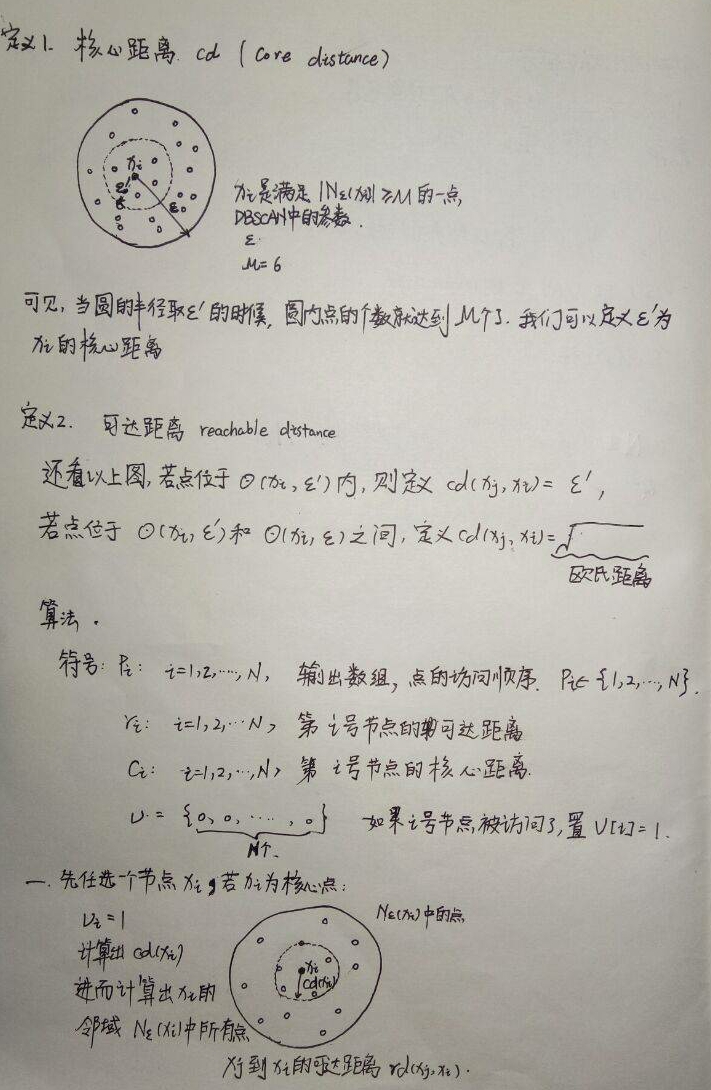 定义1. 核心距离. cd (core distance)
xi
ε'
ε
xi是满足 |Nε(xi)| ≥ M 的一点,
DBSCAN中的参数.
ε
M=6
可见, 当圆的半径取ε'的时候, 圆内点的个数就达到M个了. 我们可以定义ε'为
xi的核心距离
定义2. 可达距离 reachable distance
还看以上图, 若点位于⊙(xi, ε')内, 则定义 cd(xj, xi) = ε',
若点位于 ⊙(xi, ε')和 ⊙(xi, ε)之间, 定义cd(xj, xi)=√
欧氏距离
算法.
符号: Pi: i=1,2,…,N, 输出数组, 点的访问顺序. Pi∈{1,2,…,N}.
ri: i=1,2,…N, 第i号节点的可达距离
Ci: i=1,2,…,N, 第i号节点的核心距离.
υ = {0, 0, …, 0} 如果i号节点被访问了, 置 υ[i]=1.
N个.
一. 先任选个节点xi, 若xi为核心点:
υi=1
计算出 cd(xi)
进而计算出xi的
邻域 Nε(xi)中所有点
Nε(xi)中的点
xi
cd(xi)
xj到xi的可达距离 rd(xj, xi).